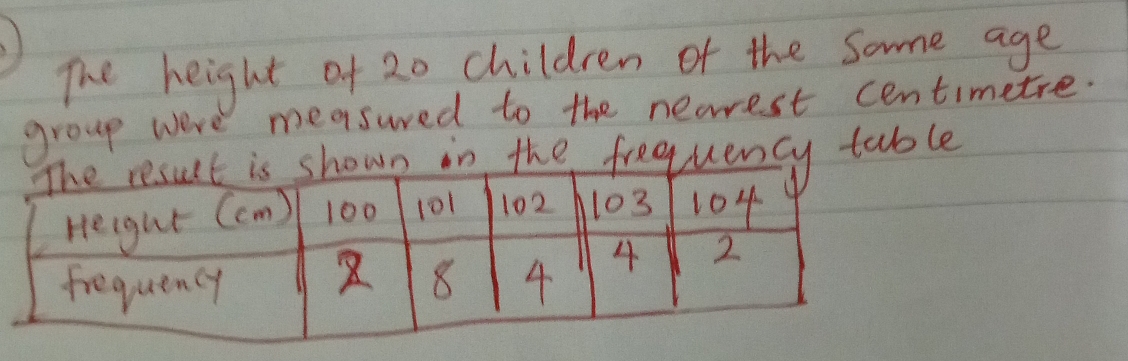 The height of 20 children of the same age
group were measured to the nearest centimetre.
The result is shown in the frequency table
Height (cm) 100 101 102 103 104
frequency 2 8 4 4 2